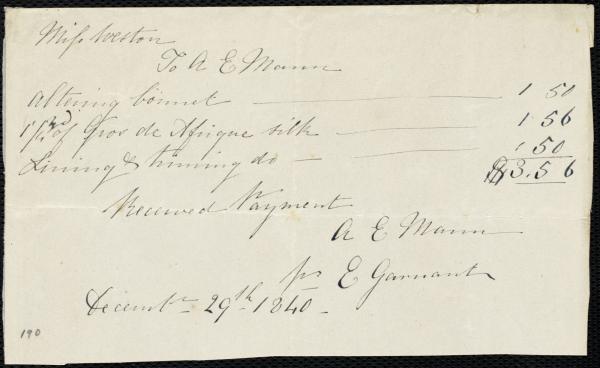 Miss Weston
To A E Mann
Altering bonnet 1 50
1 1/2 yd of Gros de Afrique silk 1 56
Lining & trimming do 50
$3.56
Received Payment
A E Mann
pr E Garnaut
Decembr 29th 1840
190